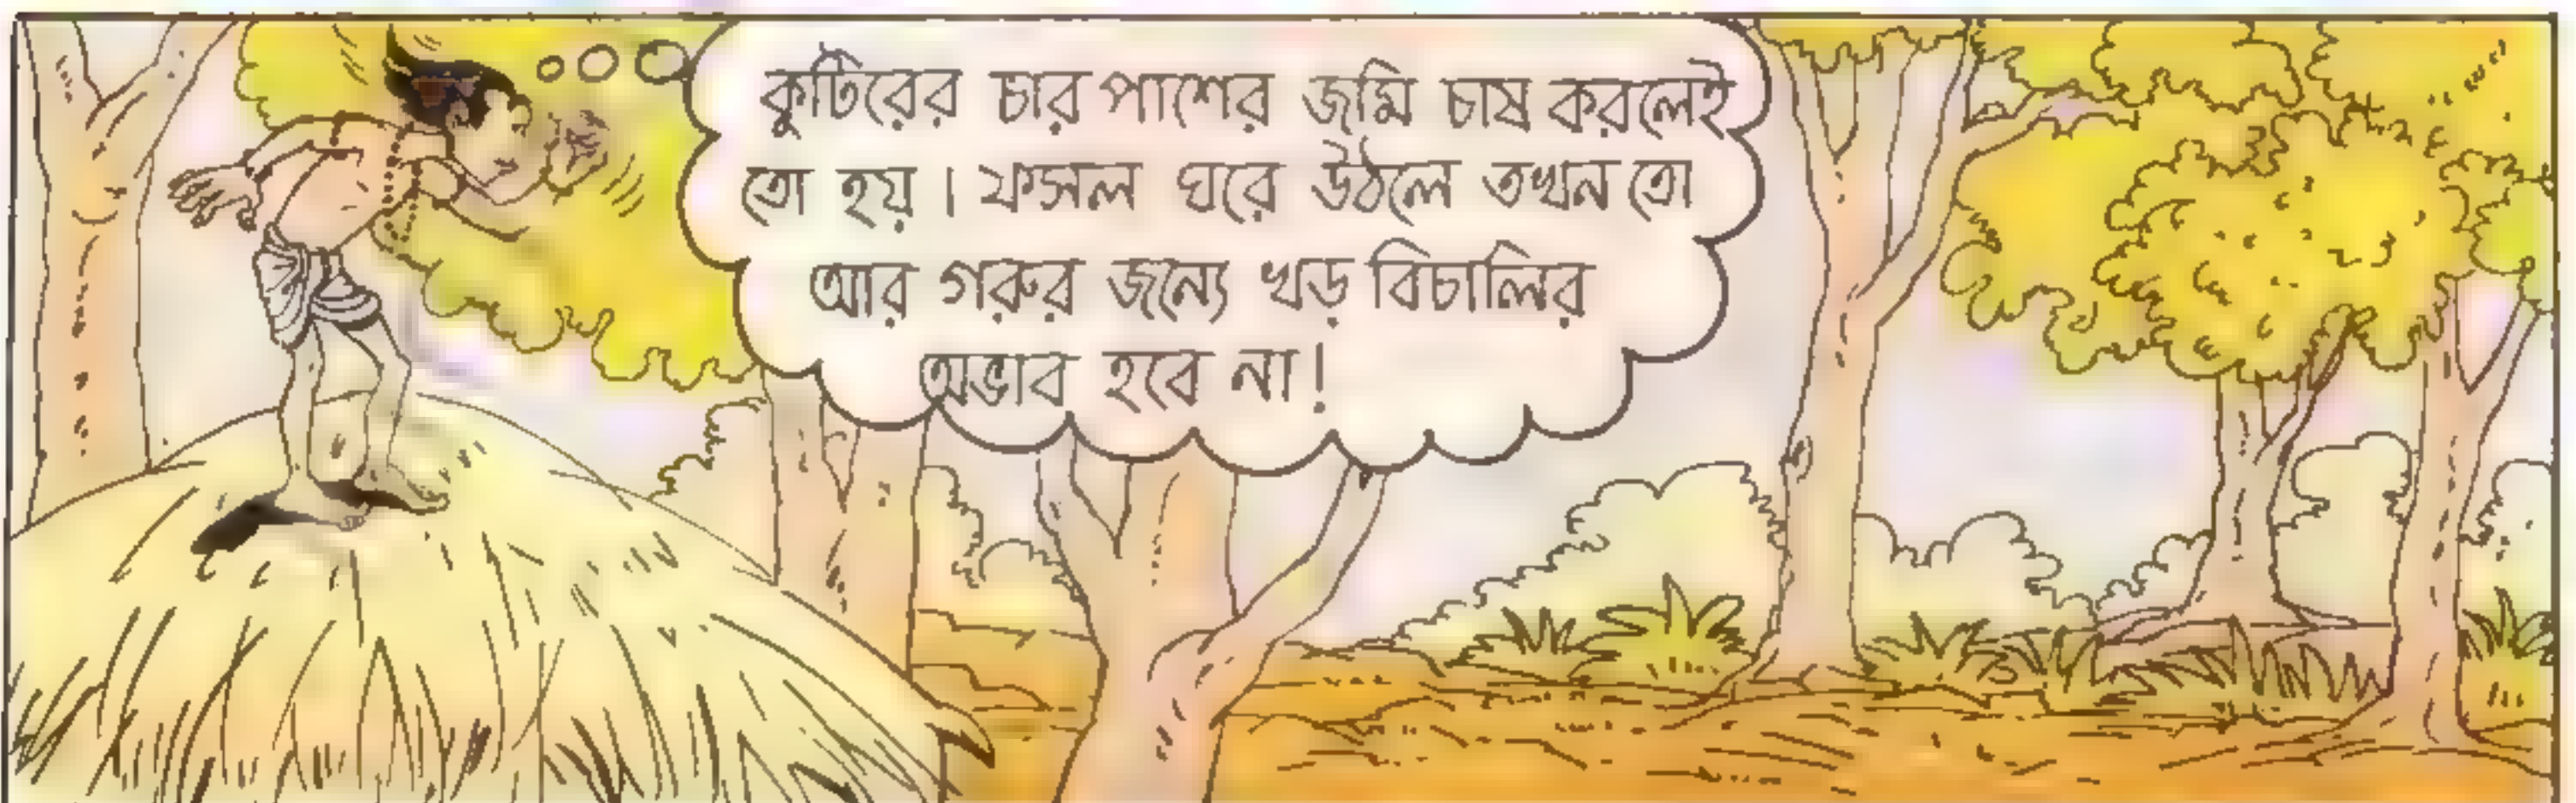 কুটিরের চার পাশের জমি চাষ করলেই
তো হয়। ফসল ঘরে উঠলে তখন তো
আর গরুর জন্যে খড় বিচালির
অভাব হবে না!